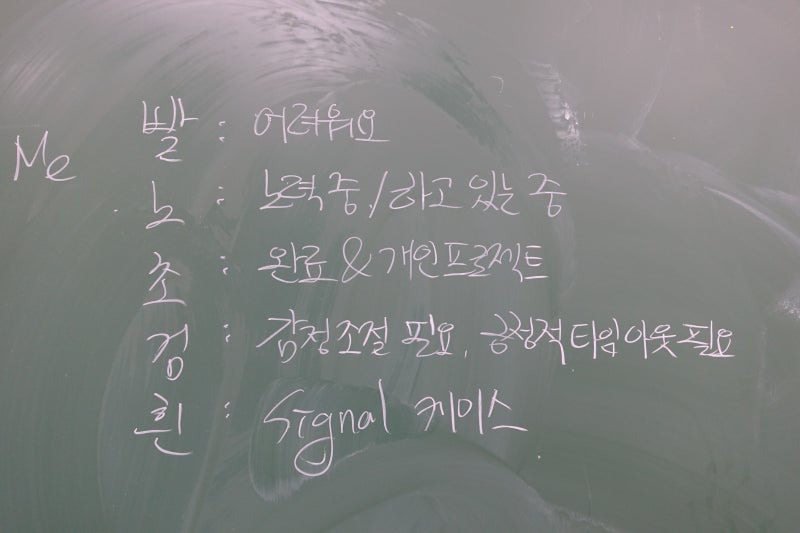 Me
발 : 어려워요
노 : 노력중/하고 있는 중
초 : 완료 & 개인프로젝트
검 : 감정조절 필요, 긍정적타임아웃필요
흰 : Signal 케이스